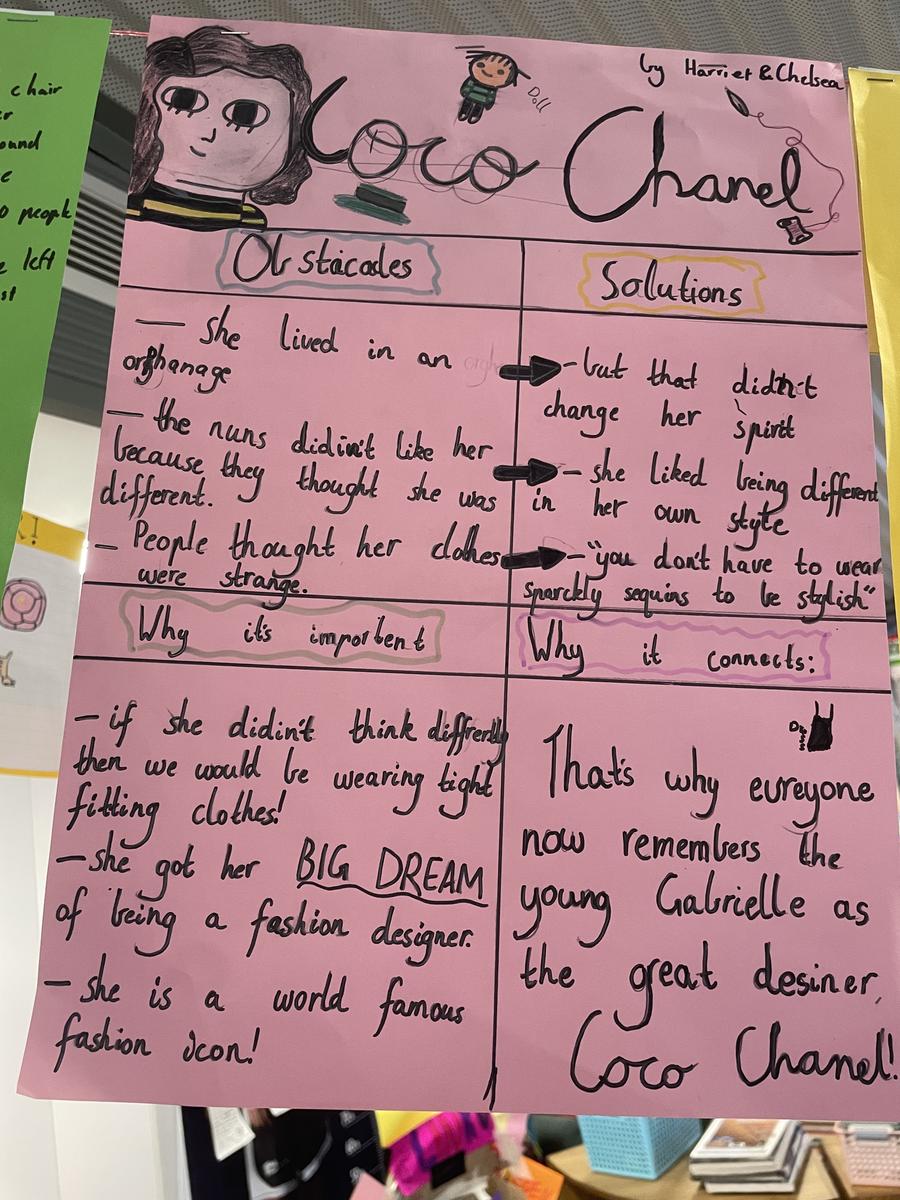 by Harriet & Chelsea
Doll
Coco Chanel
Obstacales
Solutions
— She lived in an
orphanage
— the nuns didin't like her
because they thought she was
different.
— People thought her clothes
were strange.
- but that didn't
change her spirit
- she liked being different
in her own style
- "you don't have to wear
sparckly sequins to be stylish"
Why it's importent
Why it connects:
— if she didin't think differetly
then we would be wearing tight
fitting clothes!
— she got her BIG DREAM
of being a fashion designer.
— she is a world famous
fashion icon!
That's why eureyone
now remembers the
young Gabrielle as
the great desiner,
Coco Chanel!
chair
ound
people
left